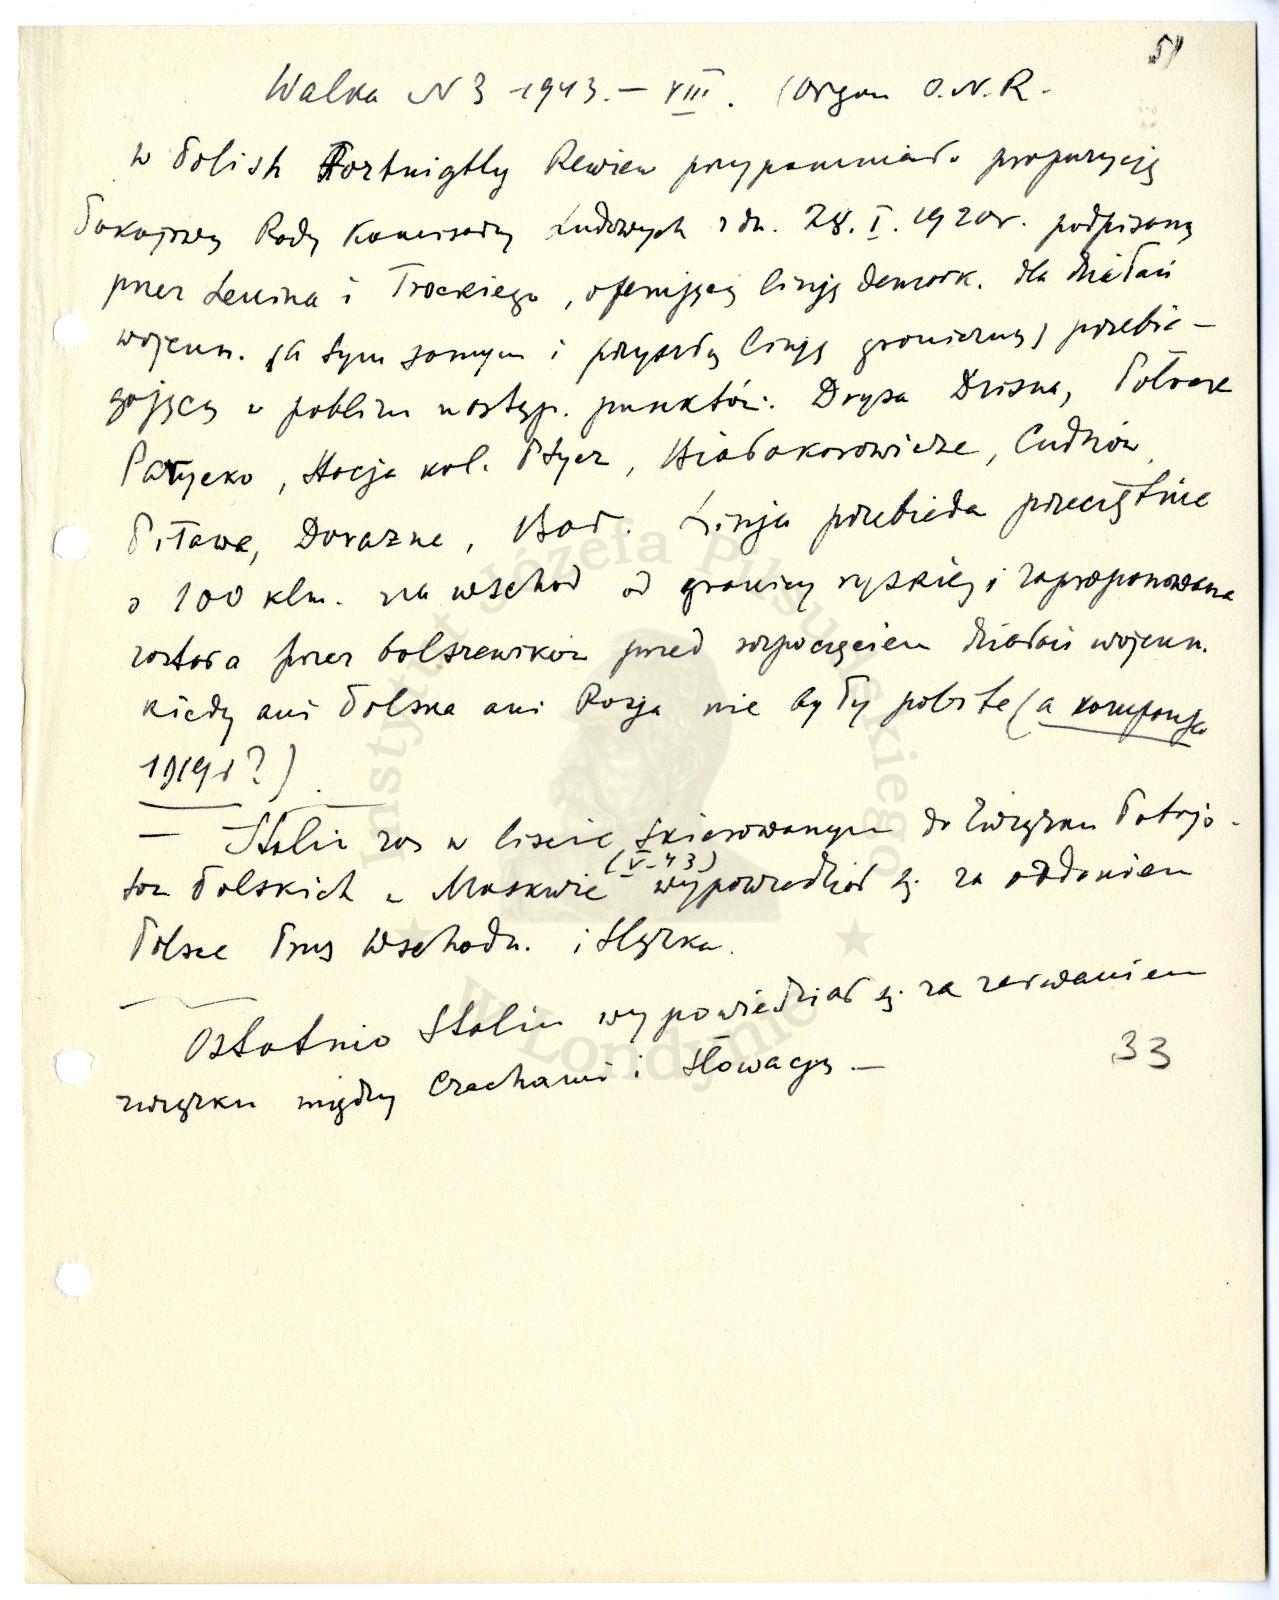 51
Walka N 3 1943. – VIII. (Organ O.N.R.
w Polish Fortnigtly Rewiew przypomniało propozycję
Pokojową Rady Komisarzy Ludowych z dn. 28.I.1920r. podpisaną
przez Lenina i Trockiego, oferującą linję demark. dla działań
wojenn. (a tym samym i przyszłą linję graniczną) przebie-
gającą w pobliżu następ. punktów: Dryssa Dzisna, Połock
Parycko, stacja kol. Ptycz, Białokorowicze, Cudnów,
Piława, Dorażne, Bar. Linja przebiega przeciętnie
o 100 klm. na wschód od granicy ryskiej i zaproponowana
została przez bolszewików przed rozpoczęciem działań wojenn.
kiedy ani Polska ani Rosja nie były pobite (a kompanja
1919r?)
– Stalin zaś w liście skierowanym do Związku Patrjo-
tów Polskich w Moskwie (V-43) wypowiedział się za oddaniem
Polsce Prus Wschodn. i Śląska.
Ostatnio Stalin wypowiedział się za zerwaniem
związku między Czechami i Słowacją –
33
Instytut Józefa Piłsudskiego
w Londynie